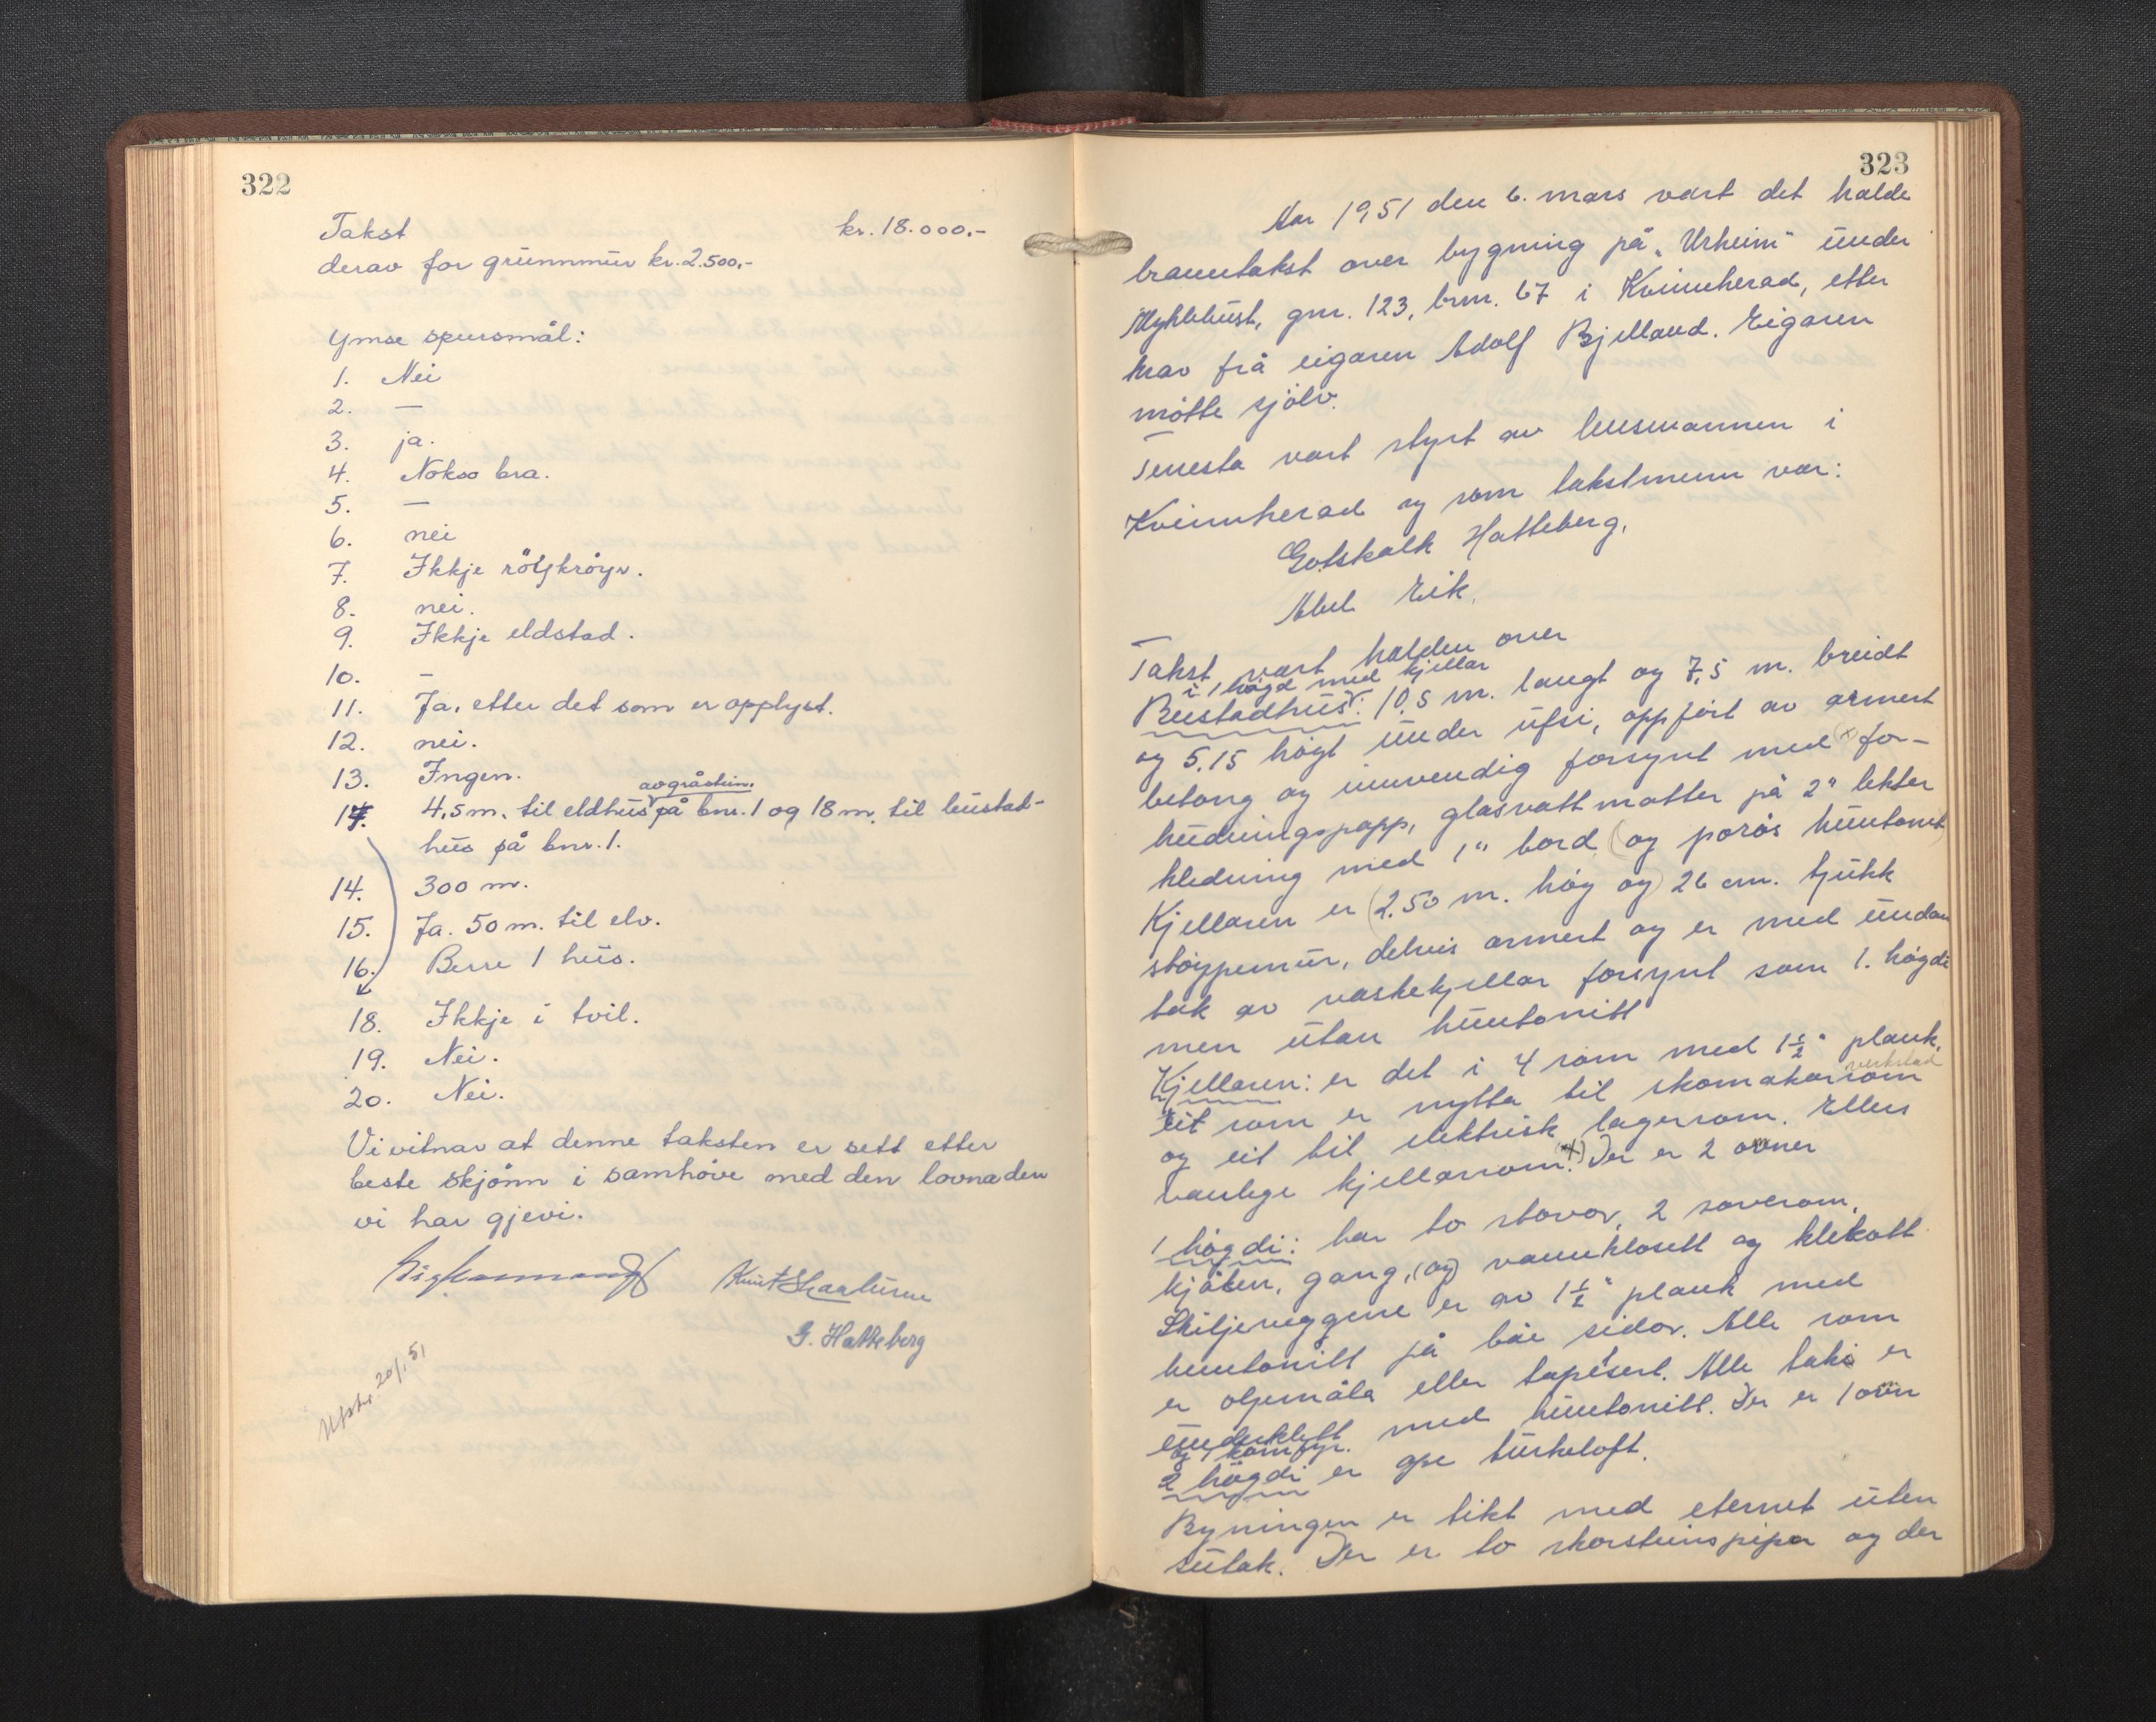 322
Takst kr. 18.000,-
derav for grunnmur kr. 2.500,-
Ymse spursmål:
1. Nei
2. —
3. ja.
4. Nokso bra.
5. —
6. nei
7. Ikkje röykröyr.
8. nei.
9. Ikkje eldstad.
10. –
11. Ja, etter det som er opplyst.
12. nei.
13. Ingen.
av gråstein.
17. 4,5 m. til eldhus på bnr. 1 og 18 m. til bustad-
hus på bnr. 1.
14. 300 m.
15. Ja. 50 m. til elv.
16. Berre 1 hus.
18. Ikkje i tvil.
19. Nei.
20. Nei.
Vi vitnar at denne taksten er sett etter
beste skjönn i samhöve med den lovnaden
vi har gjevi.
Knut Skaalurne
G. Hatteberg
20/1 51
323
Aar 1951 den 6. mars vart det halde
branntakst over bygning på "Urheim" under
Myklebust, gnr. 123, bnr. 67 i Kvinnherad, etter
krav frå eigaren Adolf Bjelland. Eigaren
møtte sjølv.
Tenesta vart styrt av lensmannen i
Kvinnherad og som takstmenn var:
Gotskalk Hatteberg,
Abel Eik.
Takst vart halden over
i 1 høgd med kjellar
Bustadhus: 10,5 m. langt og 7,5 m. breidt
og 5,15 høgt under ufsi, oppført av armert
betong og innvendig forsynt med (x) for-
hudningspapp, glasvattmatter på 2" lekter
kledning med 1" bord (og porøs huntonit)
Kjellaren er (2.50 m. høg og) 26 cm. tjukk
støypemur, delvis armert og er med undan
tak av vaskekjellar forsynt som 1. høgdi
men utan huntonitt
Kjellaren: er det i 4 rom med 1½" plank,
verkstad
eit rom er nytta til skomakarrom
og eit til elektrisk lagerrom. Ellers
vanlege kjellarrom. (x) Der er 2 ovner
1 høgdi: har to stovor, 2 soverom,
kjøken, gang, (og) vannklosett og klekott
Skiljeveggene er av 1½" plank med
huntonitt på båe sidor. Alle rom
er oljemåla eller tapesert. Alle taki er
underkledt med huntonitt. Der er 1 ovn
og 1 komfyr.
2 høgdi er ope turkeloft.
Byningen er tikt med eternit uten
sutak. Der er to skorsteinspipor og der